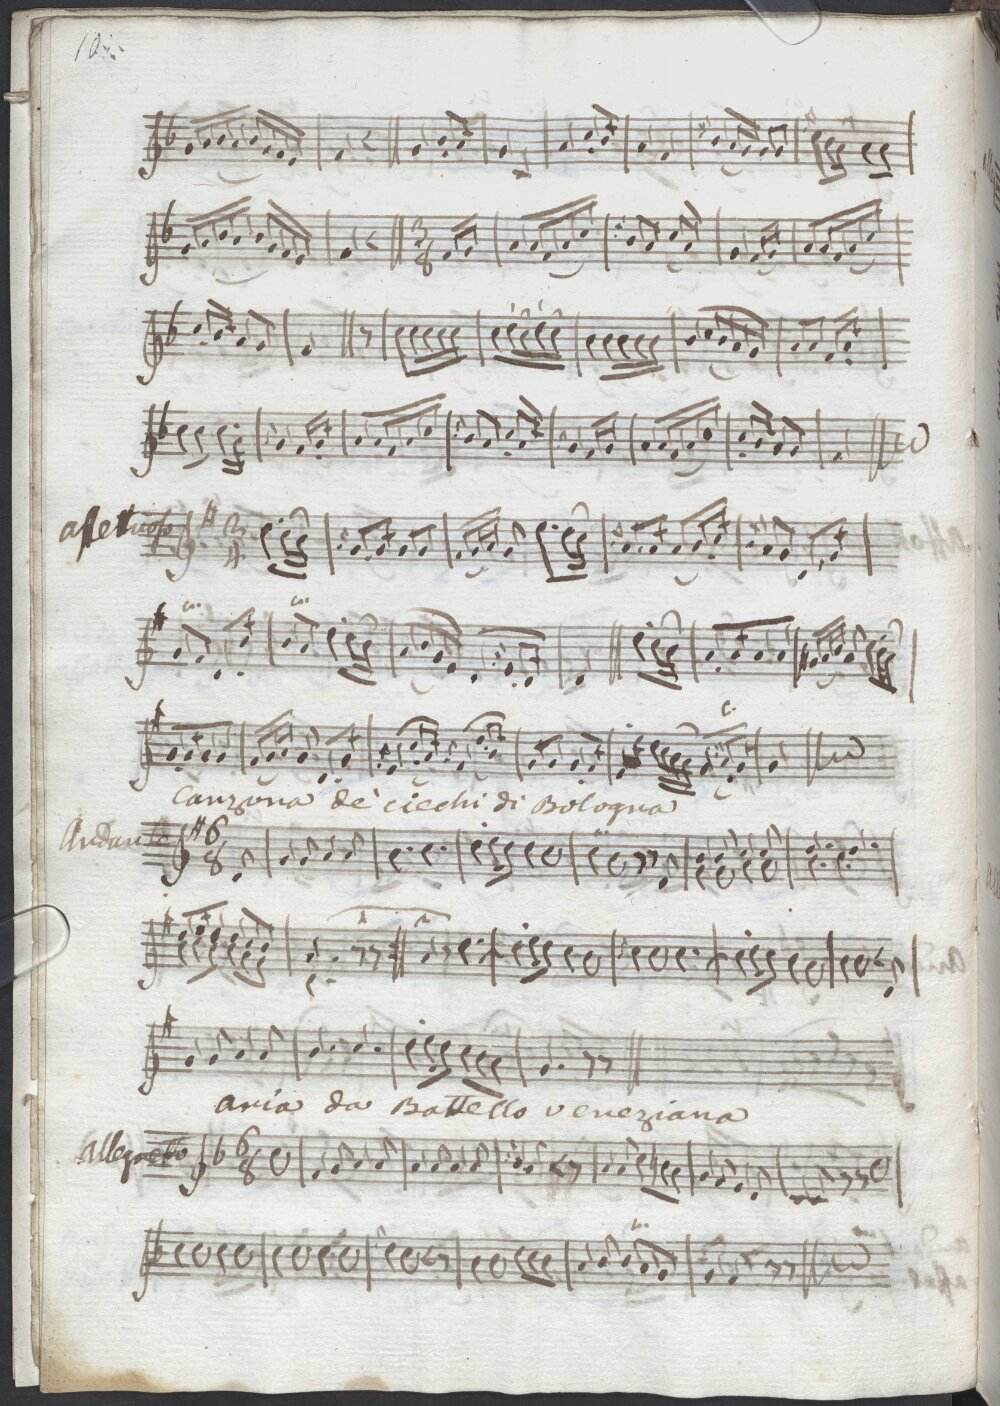 affettuoso
Canzona de' ciechi di Bologna
Andante
aria da Battello veneziana
allegretto